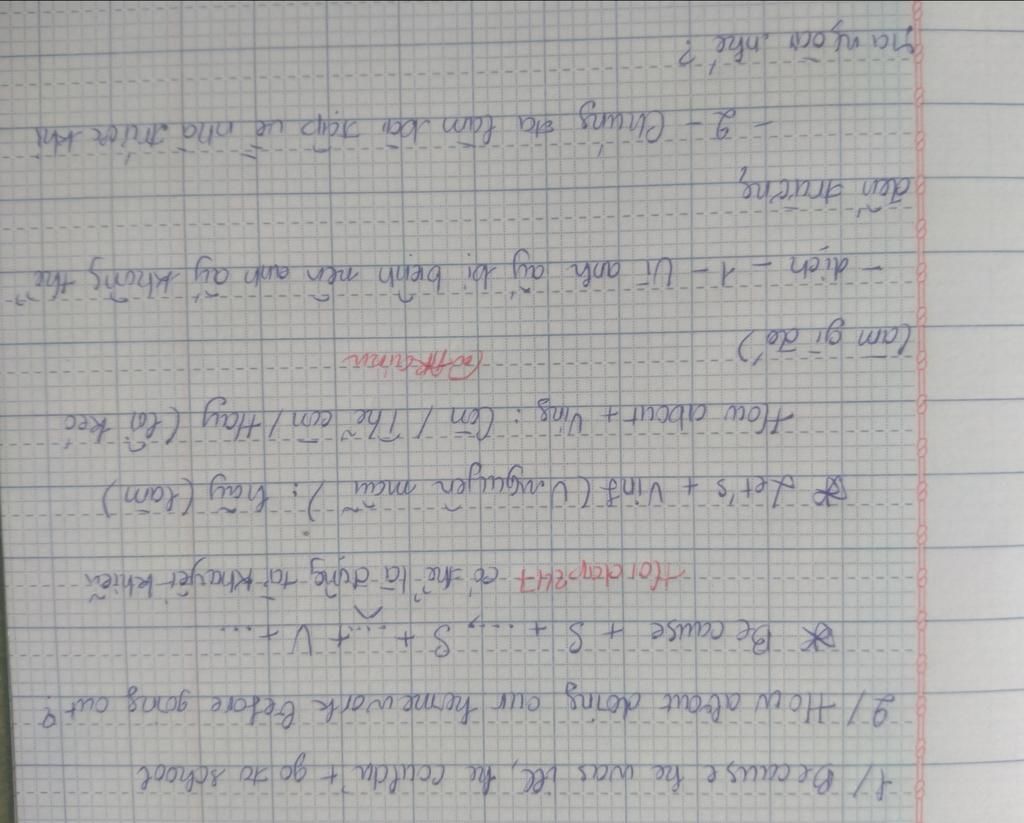 1/ Because he was ill, he couldn't go to school
2/ How about doing our homework before going out?
* Because + S + ..., S + ... + V + ...
Hoidap247 có thể là động từ khuyết khiến
* Let's + Vinf (V nguyên mẫu): hãy (làm)
How about + Ving: Còn / Thế còn / Hay (là kéo
làm gì đó)
- dịch - 1 - Vì anh ấy bị bệnh nên anh ấy không thể
đến trường,
- 2 - Chúng ta làm bài tập về nhà trước khi
ra ngoài nhé?